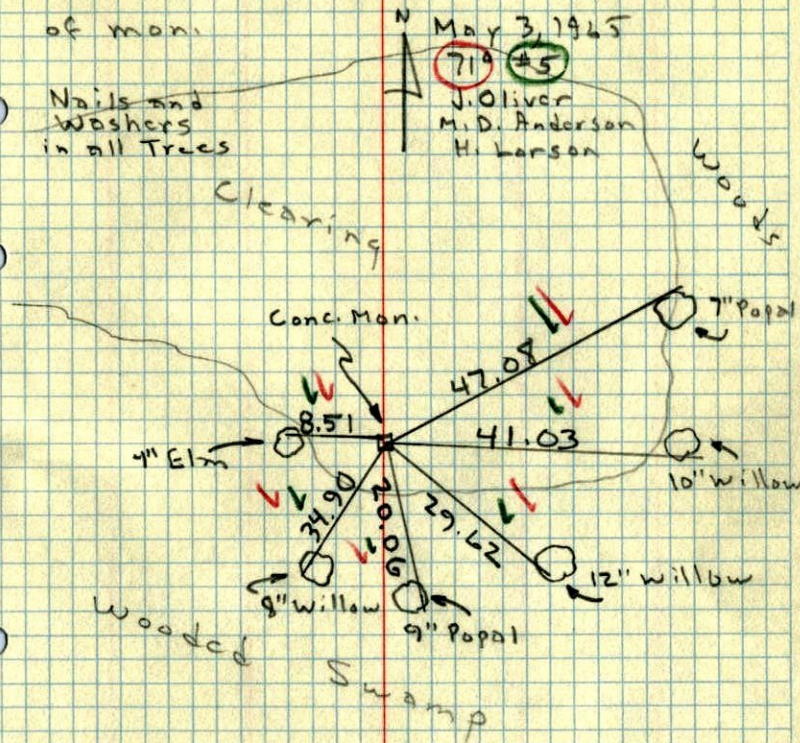 of mon.
N
May 3, 1965
719 #5
J. Oliver
M. D. Anderson
H. Larson
Nails and
Washers
in all Trees
Woods
Clearing
Conc. Mon.
7" Popal
47.08
8.51
41.03
4" Elm
10" Willow
34.90
20.06
29.62
12" Willow
8" Willow
9" Popal
Wooded
Swamp